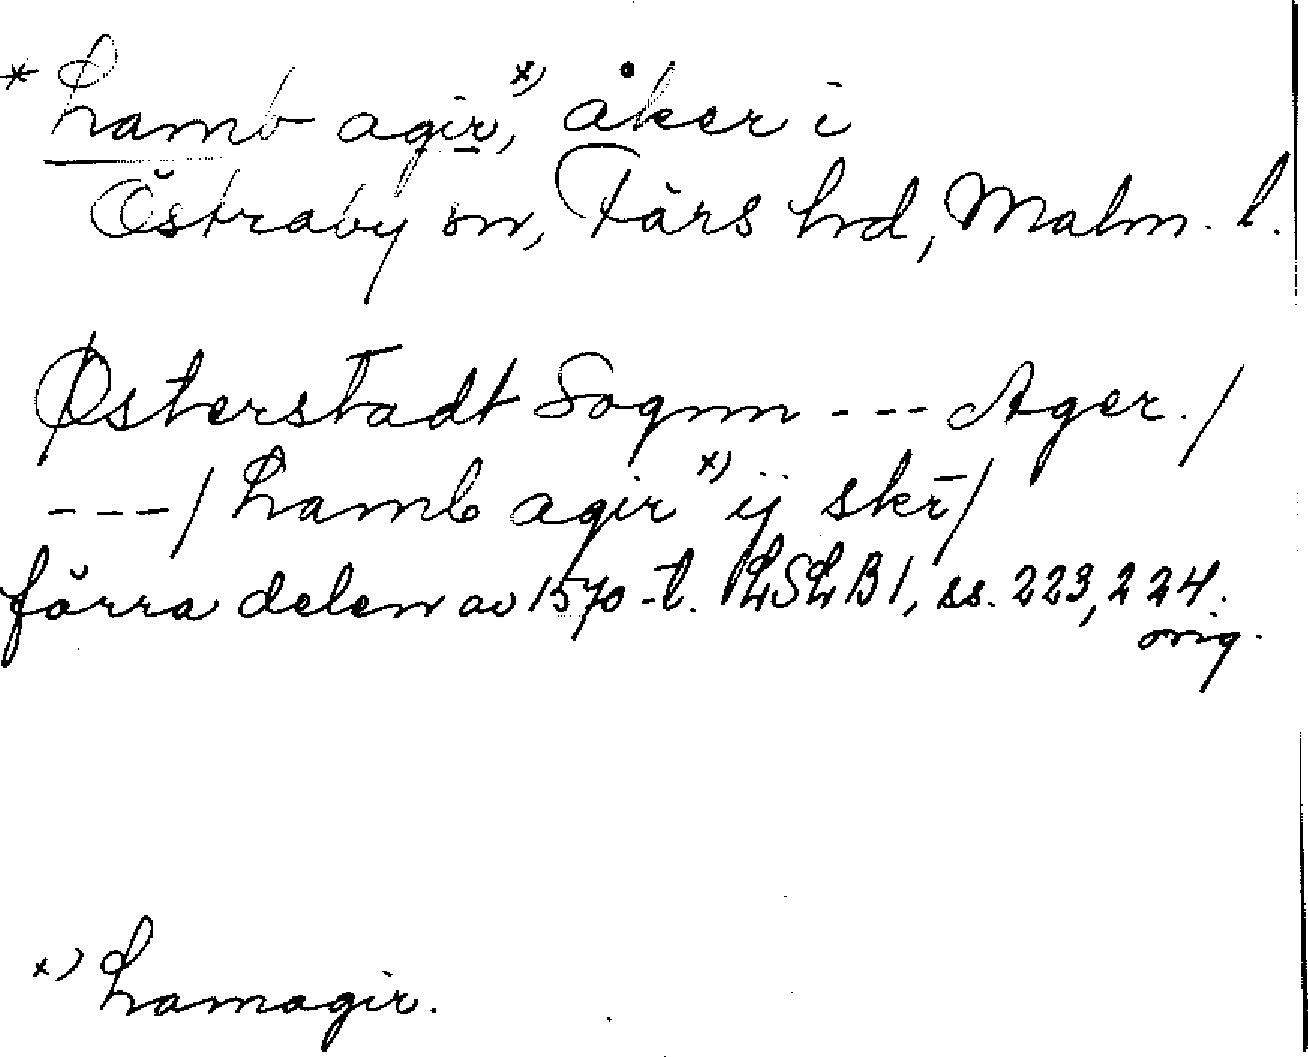 * Lamb agir, x) åker i
Östraby sn, Färs hd, Malm. l.
Østerstadt Sognn --- Ager. /
---/ Lamb agir x) ij skr̄/
förra delen av 1570-t. LSLB 1, ss. 223, 224.
orig.
x) Lamagir.